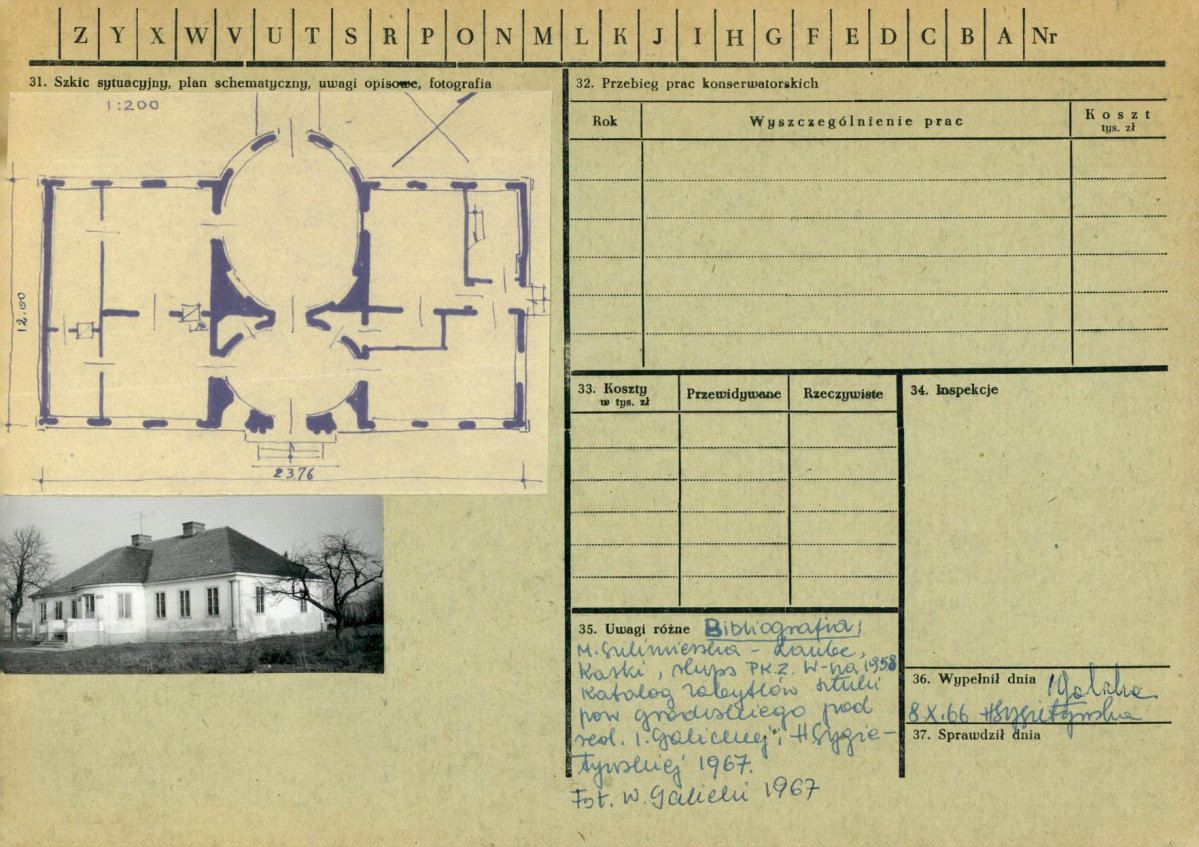 Z Y X W V U T S R P O N M L K J I H G F E D C B A Nr
31. Szkic sytuacyjny, plan schematyczny, uwagi opisowe, fotografia
1:200
12.00
23.76
32. Przebieg prac konserwatorskich
Rok
Wyszczególnienie prac
Koszt
tys. zł
33. Koszty
w tys. zł
Przewidywane
Rzeczywiste
34. Inspekcje
35. Uwagi różne Bibliografia:
M. Sulimierska - Laube,
Kaski, mps PKZ. W-wa 1958
Katalog zabytków sztuki
pow grodziskiego pod
red. I. Galickiej i H Sygie-
tyńskiej 1967.
Fot. W. Galicki 1967
36. Wypełnił dnia I Galicka
8 X. 66 H Sygietyńska
37. Sprawdził dnia